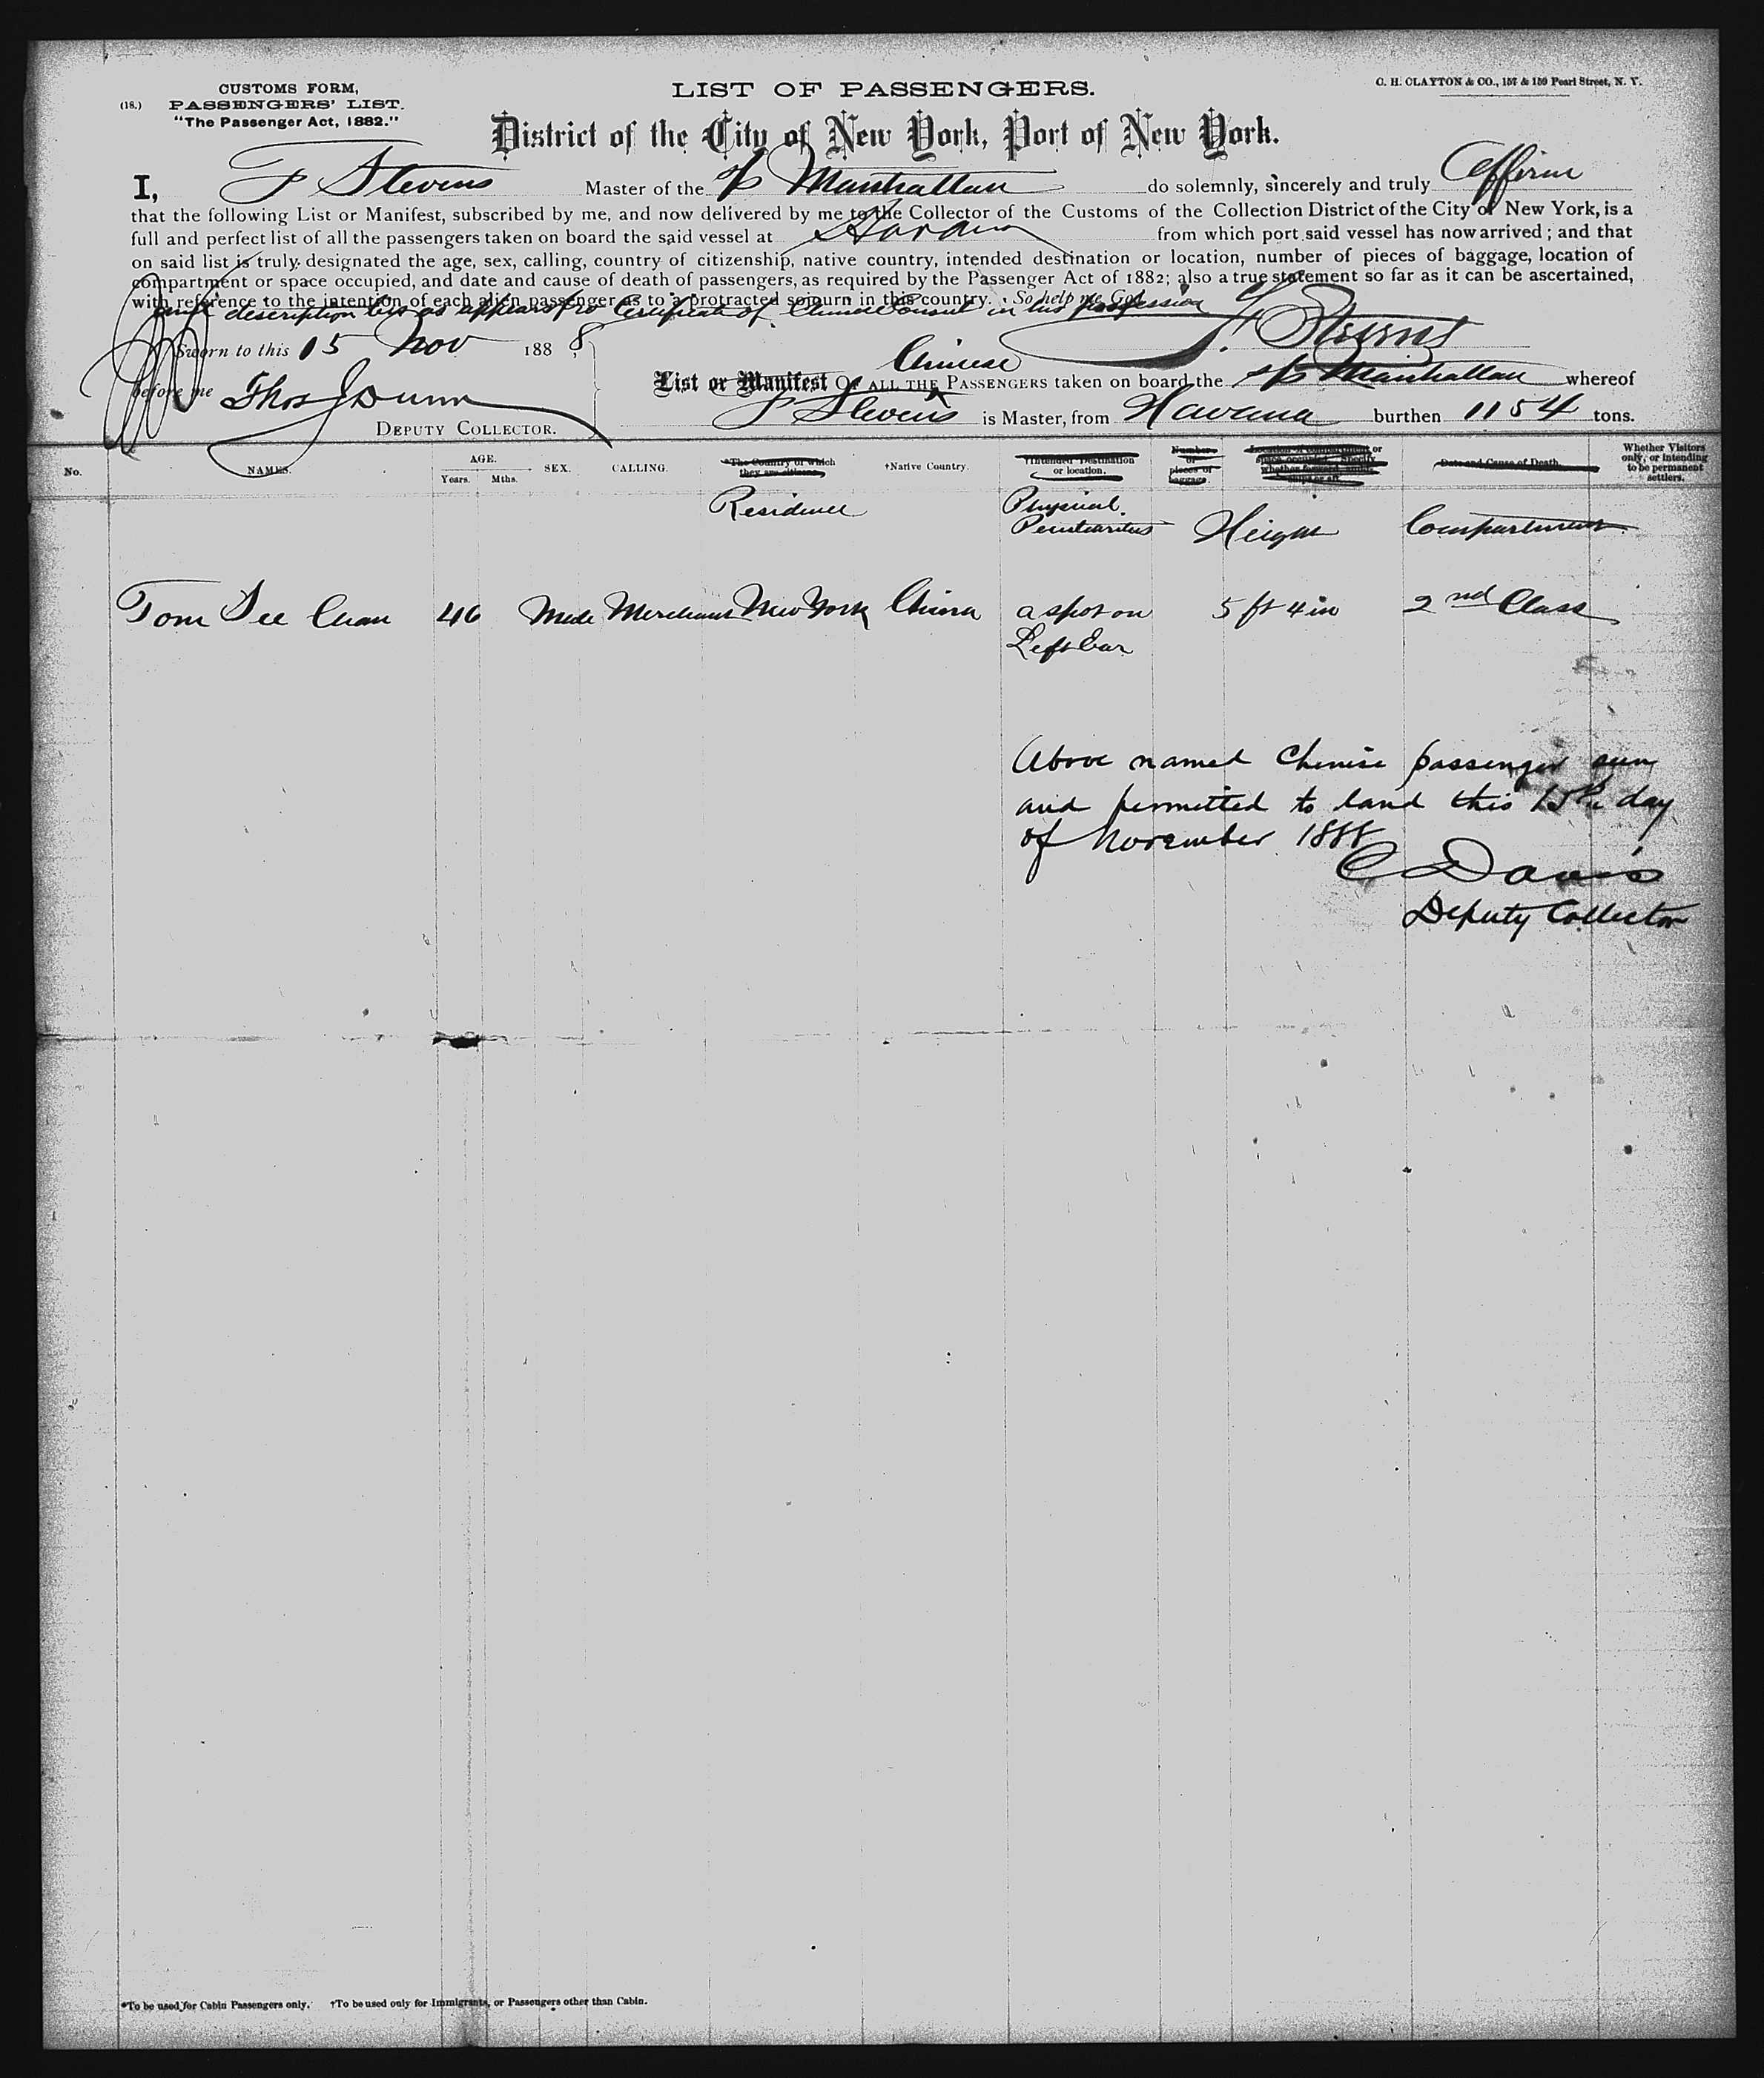 CUSTOMS FORM,
(18.) PASSENGERS' LIST.
"The Passenger Act, 1882."
LIST OF PASSENGERS.
C. H. CLAYTON & CO., 157 & 159 Pearl Street, N. Y.
District of the City of New York, Port of New York.
I, F Stevens Master of the Manhattan do solemnly, sincerely and truly affirm
that the following List or Manifest, subscribed by me, and now delivered by me to the Collector of the Customs of the Collection District of the City of New York, is a
full and perfect list of all the passengers taken on board the said vessel at Havana from which port said vessel has now arrived; and that
on said list is truly designated the age, sex, calling, country of citizenship, native country, intended destination or location, number of pieces of baggage, location of
compartment or space occupied, and date and cause of death of passengers, as required by the Passenger Act of 1882; also a true statement so far as it can be ascertained,
with reference to the intention of each alien passenger as to a protracted sojourn in this country. So help me God.
description as appears Certificate of Chinese Consul in his possession
F. Stevens
Sworn to this 15 Nov 1888,
before me Thos J Dunn
DEPUTY COLLECTOR.
Chinese
List or Manifest OF ALL THE PASSENGERS taken on board the Manhattan whereof
F Stevens is Master, from Havana burthen 1154 tons.
No. NAMES. AGE. Years. Mths. SEX. CALLING. *The Country of which they are citizens. †Native Country. †Intended Destination or location. Number of pieces of baggage. Date and Cause of Death. Whether Visitors only, or intending to be permanent settlers.
Residence Physical Peculiarities Height Compartment
Tom See Chan 46 Male Merchant New York China a spot on 5 ft 4 in 2nd Class
Left Ear
Above named Chinese passenger seen
and permitted to land this 15th day
of November 1888
C Davis
Deputy Collector
*To be used for Cabin Passengers only. †To be used only for Immigrants, or Passengers other than Cabin.